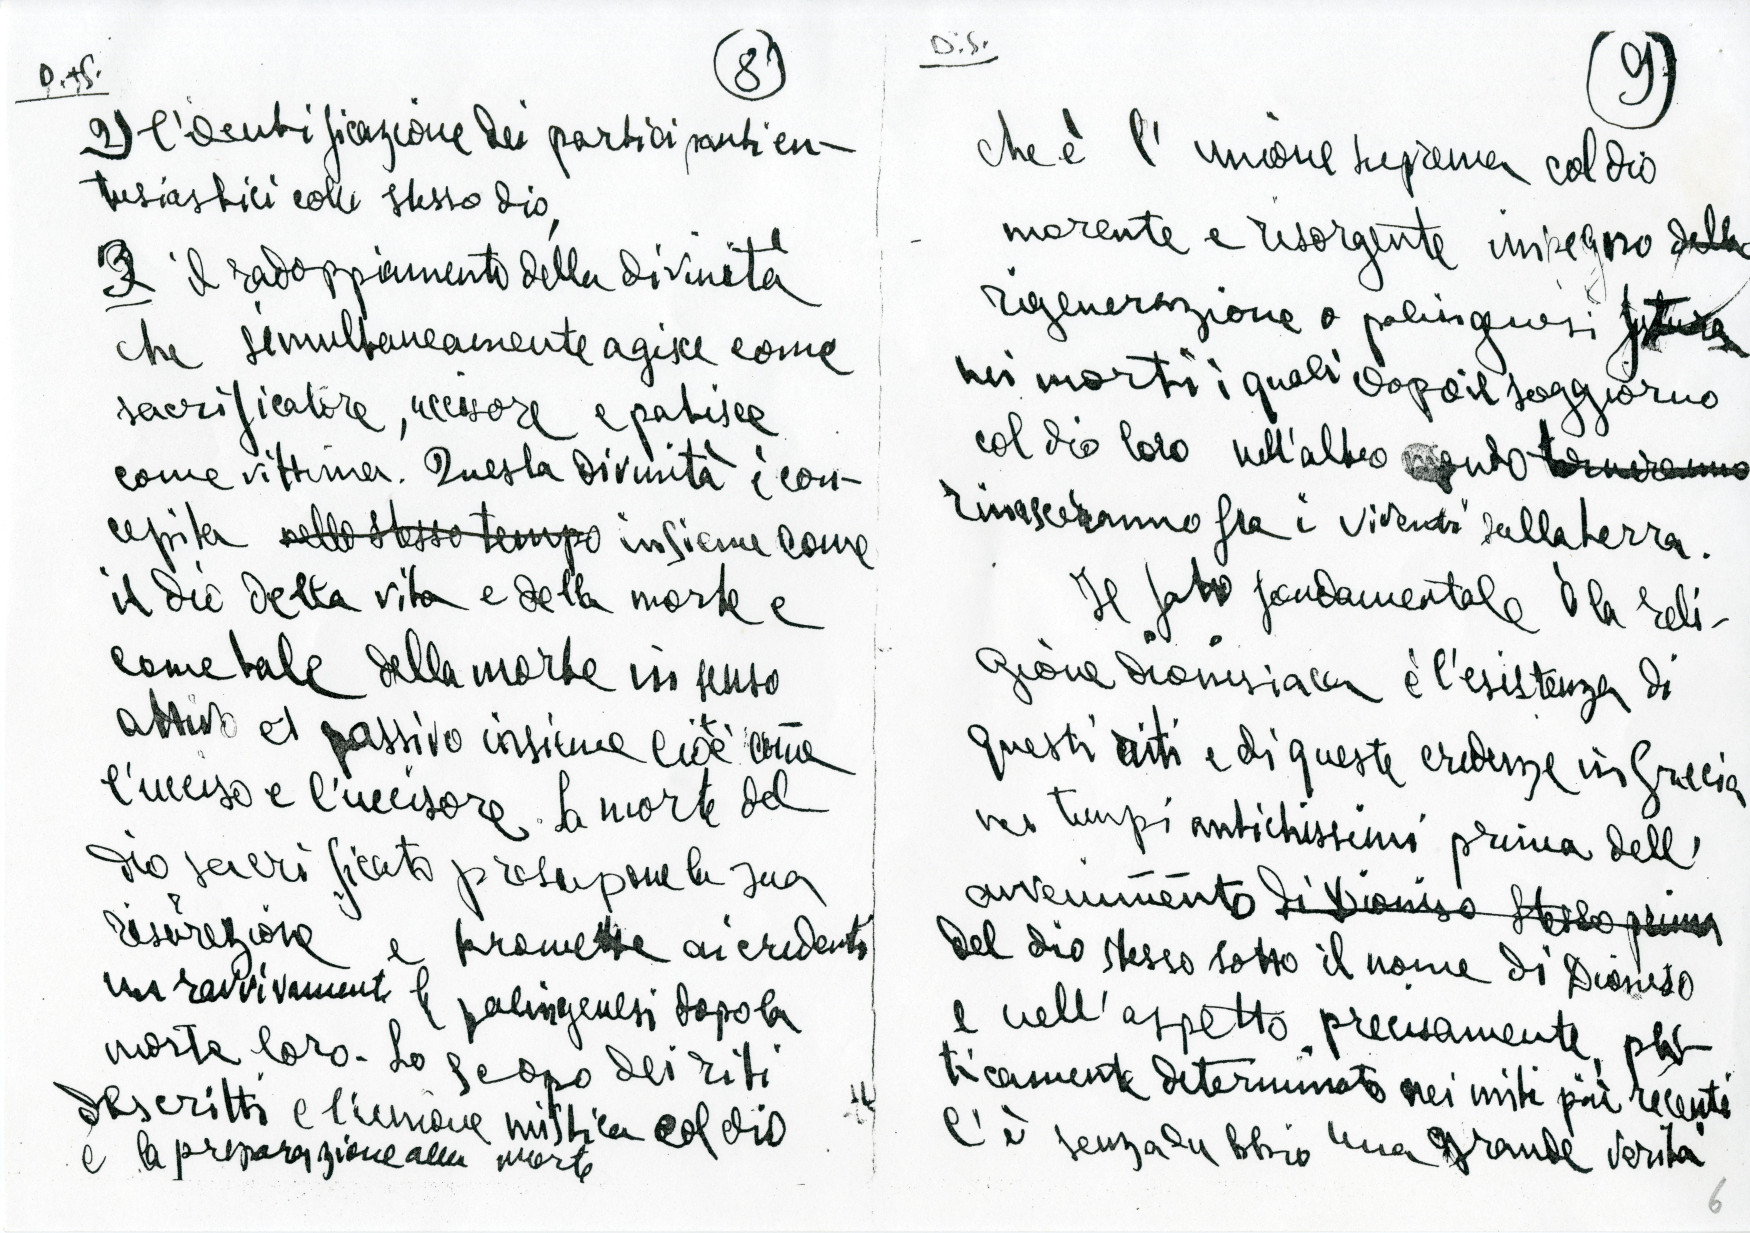 D.+S.
8
2) l'identificazione dei partecipanti en-
tusiastici collo stesso dio,
3 il radoppiamento della divinità
che simultaneamente agisce come
sacrificatore, uccisore e patisce
come vittima. Questa divinità è con-
cepita nello stesso tempo insieme come
il dio della vita e della morte e
come tale della morte in senso
attivo et passivo insieme cioè come
l'ucciso e l'uccisore. La morte del
dio sacrificato presupone la sua
risurezione e promette ai credenti
un ravvivamento palingenesi dopo la
morte loro. Lo scopo dei riti
descritti e l'unione mistica col dio
e la preparazione alla morte
D.S.
9
che è l'unione suprema col dio
morente e risorgente in segno della
rigenerazione o palingenesi futura
dei morti i quali dopo il soggiorno
col dio loro nell'altro mondo torneranno
rinasceranno fra i viventi sulla terra.
Il fato fondamentale la reli-
gione dionisiaca è l'esistenza di
questi riti e di queste credenze in Grecia
nei tempi antichissimi prima dell'
avvenimento di Dioniso stesso prima
del dio stesso sotto il nome di Dioniso
e nell'aspetto precisamente, plas-
ticamente determinato nei miti più recenti
C'è senza dubbio una grande verità
6